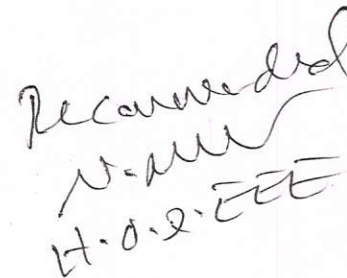 Recommended
H.O.D.EEE